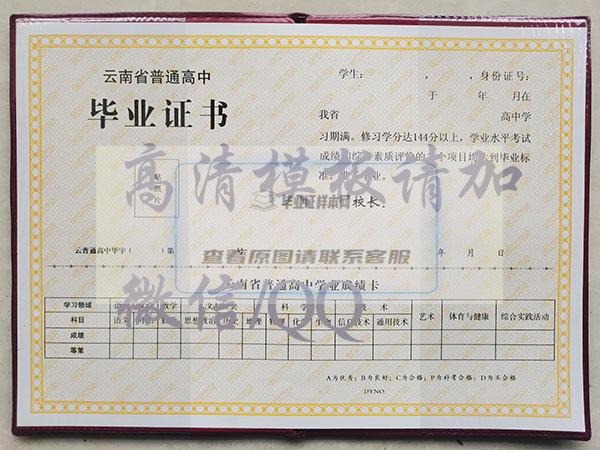 云南省普通高中
毕业证书
学生：　　　，　　，身份证号：
于　　年　月在
我省　　　　　　高中学
习期满。修习学分达144分以上，学业水平考试
成绩和综合素质评价的　个项目均达到毕业标
准，　　业。
贴照片
校长：
云普通高中毕字（　）第　　号
年　月　日
高清模板请加
微信/QQ
毕业证样本网
查看原图请联系客服
云南省普通高中学业成绩卡
学习领域　　数学　　科学　技术　艺术　体育与健康　综合实践活动
科目　语文　　思想政治　历史　地理　物理　化学　生物　信息技术　通用技术
成绩
等第
A为优秀；B为良好；C为合格；P为补考合格；D为不合格
DYNO.